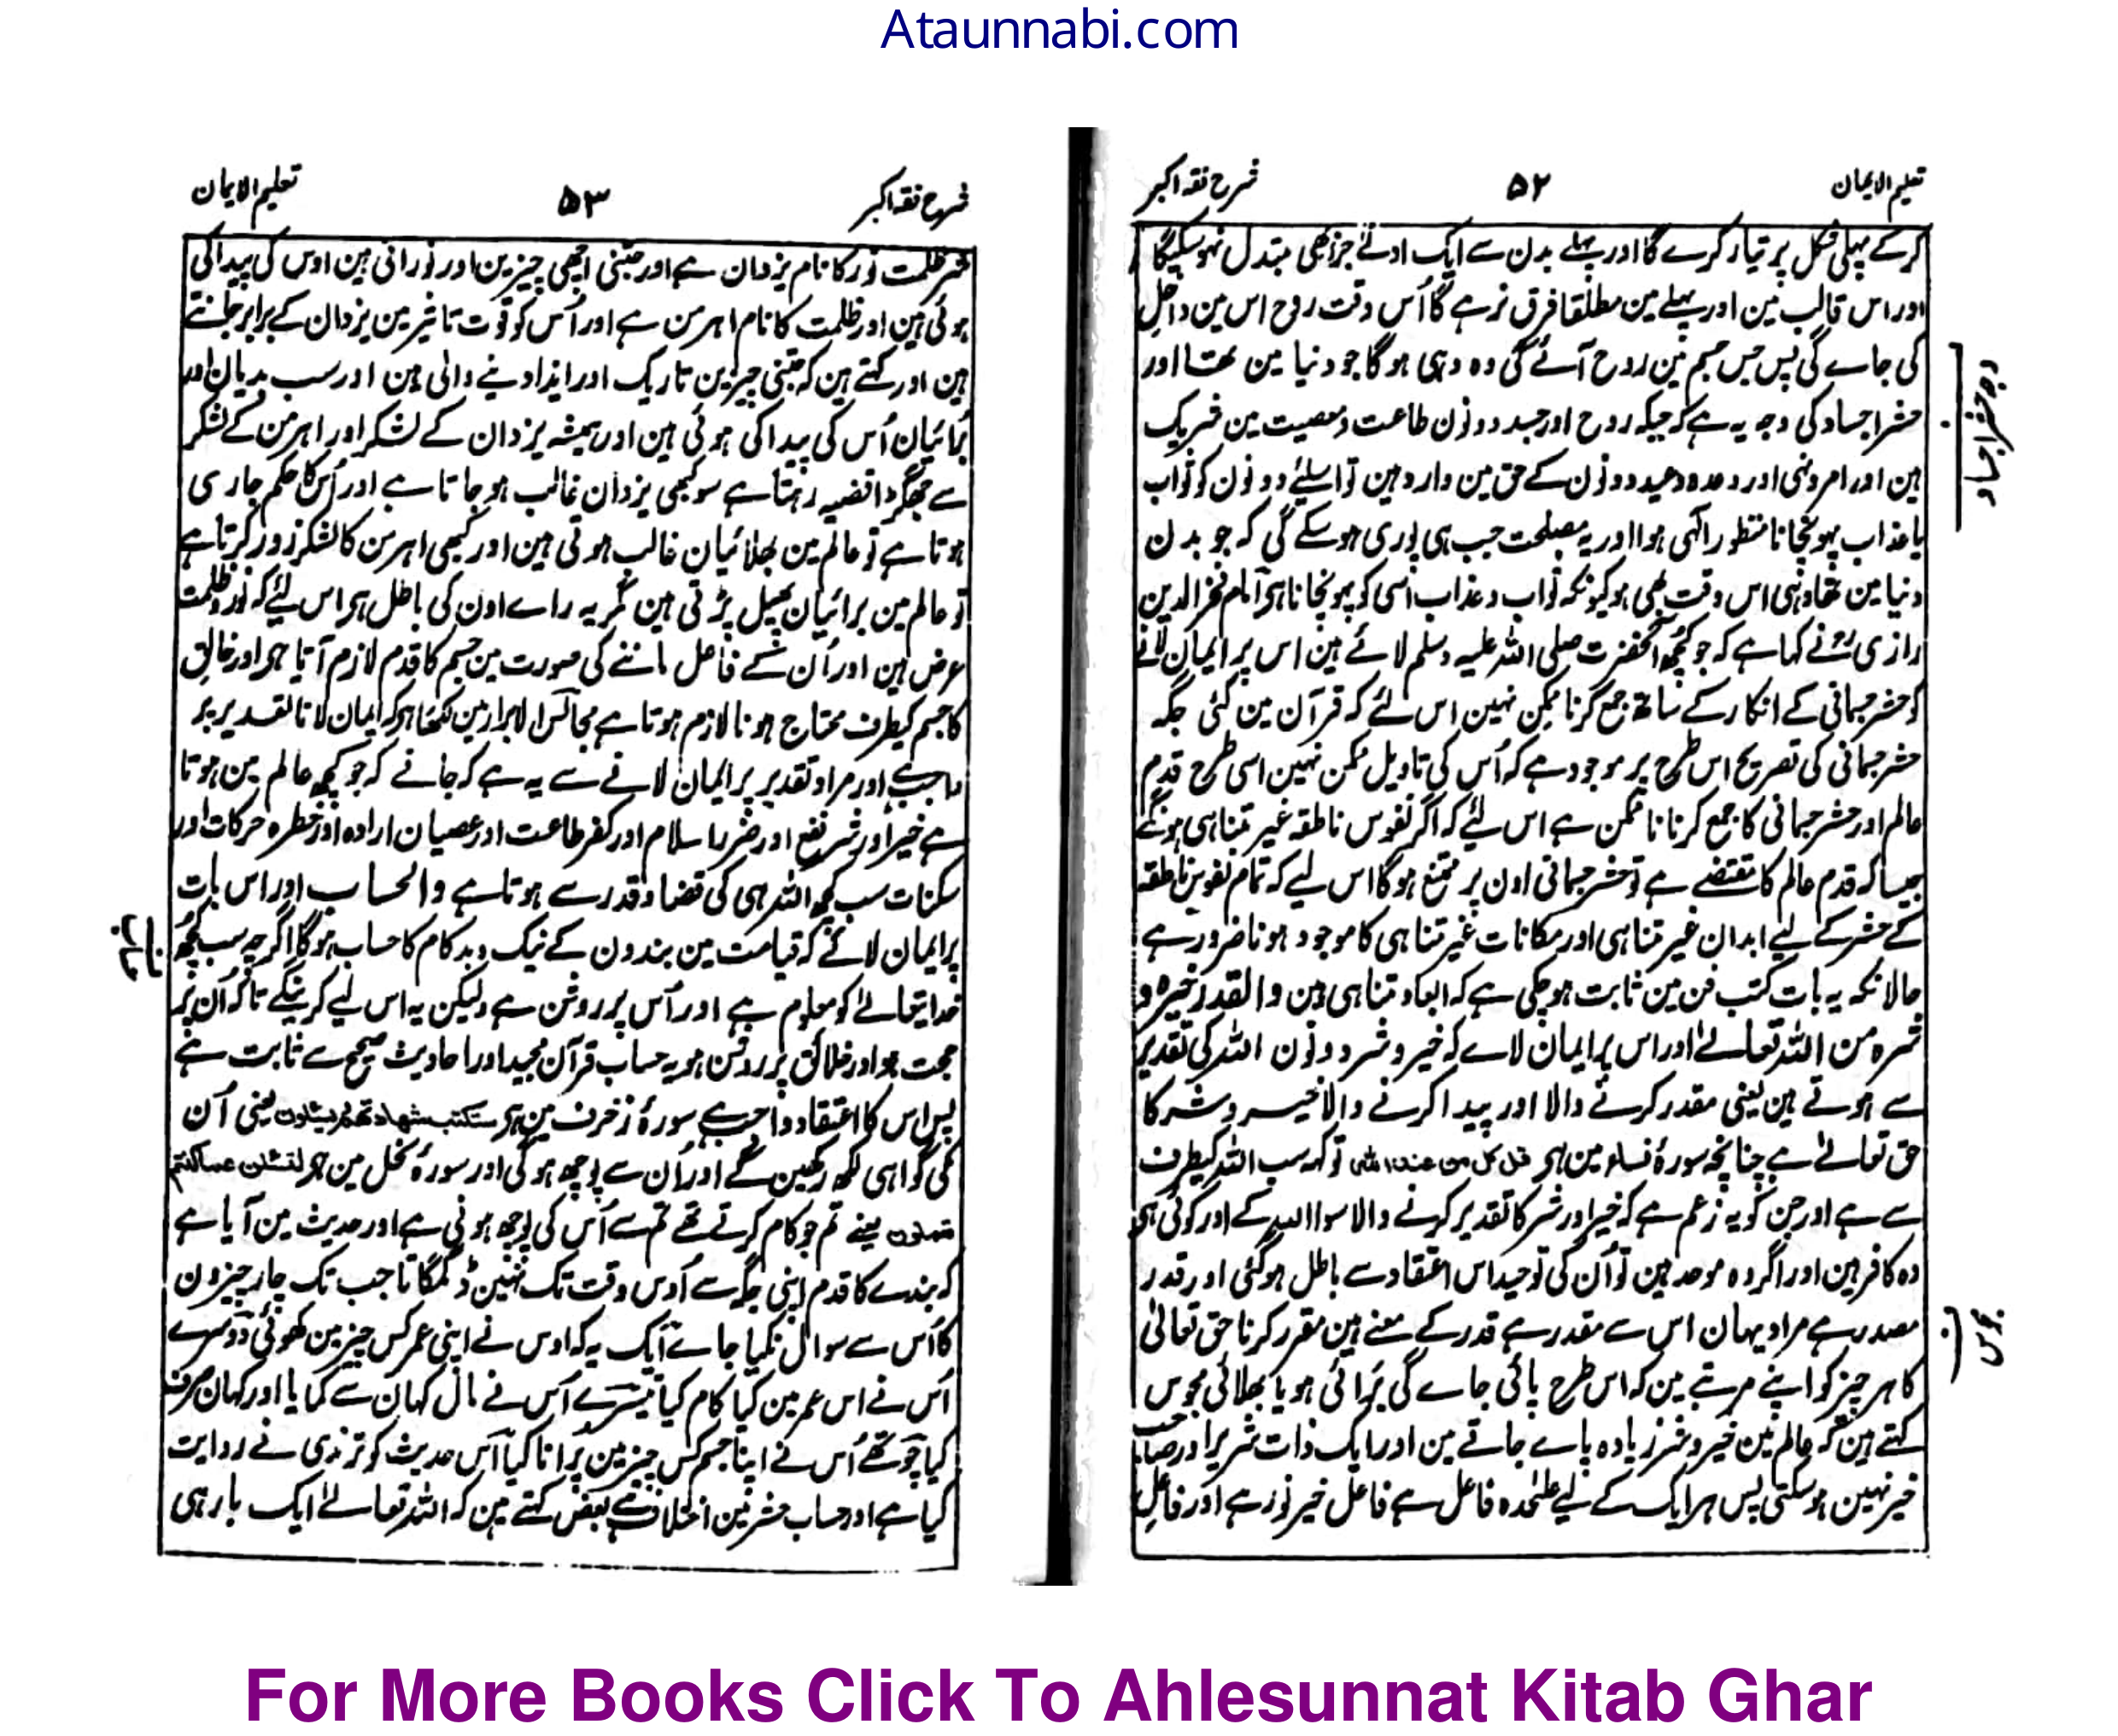 Ataunnabi.com
تعلیم الایمان
۵۲
شرح فقہ اکبر
کرکے پہلی شکل پر تیار کرے گا اور پہلے بدن سے ایک ادنےٰ جز بھی مبتدل نہوسکیگا
اور اس قالب مین اور پہلے مین مطلقا فرق نرہے گا اُس وقت روح اس مین داخل
کی جاے گی پس جس جسم مین روح آئے گی وہ وہی ہوگا جو دنیا مین تھا اور
حشر اجساد کی وجہ یہ ہے کہ جبکہ روح اور جسد دونون طاعت و معصیت مین شریک
ہین اور امر و نہی اور وعدہ و وعید دونون کے حق مین وارد ہین تو اسلیے دونون کو ثواب
یا عذاب پہونچانا منظور الٰہی ہوا اور یہ مصلحت جب ہی پوری ہوسکے گی کہ جو بدن
دنیا مین تھا وہی اس وقت بھی ہو کیونکہ ثواب و عذاب اسی کو پہونچانا ہی امام فخر الدین
رازی رح نے کہا ہے کہ جو کچھ آنحضرت صلی اللہ علیہ وسلم لائے ہین اس پر ایمان لانے
کو حشر جسمانی کے انکار کے ساتھ جمع کرنا ممکن نہین اس لئے کہ قرآن مین کئی جگہ
حشر جسمانی کی تصریح اس طرح پر موجود ہے کہ اُس کی تاویل ممکن نہین اسی طرح قدم
عالم اور حشر جسمانی کا جمع کرنا نا ممکن ہے اس لیے کہ اگر نفوس ناطقہ غیر متناہی ہونگے
جیسا کہ قدم عالم کا مقتضے ہے تو حشر جسمانی اون پر ممتنع ہوگا اس لیے کہ تمام نفوس ناطقہ
کے حشر کے لیے ابدان غیر متناہی اور مکانات غیر متناہی کا موجود ہونا ضرور ہے
حالانکہ یہ بات کتب فن مین ثابت ہوچکی ہے کہ ابعاد متناہی ہین والقدر خیرہ و
شرہ من اللہ تعالےٰ اور اس پر ایمان لاے کہ خیر و شر دونون اللہ کی تقدیر
سے ہوتے ہین یعنی مقدر کرنے والا اور پیدا کرنے والا خیر و شر کا
حق تعالےٰ ہے چنانچہ سورۂ نساء مین ہی قل کل من عند اللہ تو کہہ سب اللہ کیطرف
سے ہے اور جن کو یہ زعم ہے کہ خیر اور شر کا تقدیر کرنے والا سوا اللہ کے اور کوئی ہی
وہ کافر ہین اور اگر وہ موحد ہین تو اُن کی توحید اس اعتقاد سے باطل ہوگئی اور قدر
مصدر ہے مراد یہان اس سے مقدر ہے قدر کے معنے ہین مقرر کرنا حق تعالیٰ
کا ہر چیز کو اپنے مرتبے مین کہ اس طرح پائی جاے گی بُرائی ہو یا بھلائی مجوس
کہتے ہین کہ عالم مین خیر و شر زیادہ پاے جاتے ہین اور ایک ذات شریر اور صاحب
خیر نہین ہوسکتی پس ہر ایک کے لیے علٰحدہ فاعل ہے فاعل خیر نور ہے اور فاعل
وجہ حشر اجساد
مجوس
شرح فقہ اکبر
۵۳
تعلیم الایمان
شر ظلمت نور کا نام یزدان ہے اور جتنی اچھی چیزین اور نورانی ہین اوس کی پیدا کی
ہوئی ہین اور ظلمت کا نام اہرمن ہے اور اُس کو قوت تاثیر مین یزدان کے برابر جانتے
ہین اور کہتے ہین کہ جتنی چیزین تاریک اور ایذا دینے والی ہین اور سب بدیان اور
بُرائیان اُس کی پیدا کی ہوئی ہین اور ہمیشہ یزدان کے لشکر اور اہرمن کے لشکر
سے جھگڑا قضیہ رہتا ہے سو کبھی یزدان غالب ہوجاتا ہے اور اُس کا حکم جاری
ہوتا ہے تو عالم مین بھلائیان غالب ہوتی ہین اور کبھی اہرمن کا لشکر زور کرتا ہے
تو عالم مین برائیان پھیل پڑتی ہین مگر یہ راے اون کی باطل ہی اس لئے کہ نور و ظلمت
عرض ہین اور اُن کے فاعل ماننے کی صورت مین جسم کا قدم لازم آتا ہی اور خالق
کا جسم کیطرف محتاج ہونا لازم ہوتا ہے مجالس الابرار مین لکھا ہی کہ ایمان لانا تقدیر پر
واجب ہے اور مراد تقدیر پر ایمان لانے سے یہ ہے کہ جانے کہ جو کچھ عالم مین ہوتا
ہے خیر اور شر نفع اور ضرر اسلام اور کفر طاعت اور عصیان ارادہ اور خطرہ حرکات اور
سکنات سب کچھ اللہ ہی کی قضا و قدر سے ہوتا ہے والحساب اور اس بات
پر ایمان لائے کہ قیامت مین بندون کے نیک و بد کام کا حساب ہوگا اگرچہ سب کچھ
خدایتعالےٰ کو معلوم ہے اور اُس پر روشن ہے ولیکن یہ اس لیے کرینگے تاکہ اُن پر
حجت ہو اور خلائق پر روشن ہو یہ حساب قرآن مجید اور احادیث صحیح سے ثابت ہے
پس اس کا اعتقاد واجب ہے سورۂ زخرف مین ہی ستکتب شھادتھم ویسئلون یعنی اُن
کی گواہی لکھ رکھین گے اور اُن سے پوچھ ہوگی اور سورۂ نحل مین ہی لتسئلن عما کنتم
تعملون یعنے تم جو کام کرتے تھے تم سے اُس کی پوچھ ہونی ہے اور حدیث مین آیا ہے
کہ بندے کا قدم اپنی جگہ سے اُوس وقت تک نہین ڈگمگاتا جب تک چار چیزون
کا اُس سے سوال نکیا جاے ایک یہ کہ اوس نے اپنی عمر کس چیز مین کھوئی دوسرے
اُس نے اس عمر مین کیا کام کیا تیسرے اُس نے مال کہان سے کمایا اور کہان صرف
کیا چوتھے اُس نے اپنا جسم کس چیز مین پُرانا کیا اس حدیث کو ترمذی نے روایت
کیا ہے اور حساب حشر مین اختلاف ہے بعض کہتے ہین کہ اللہ تعالےٰ ایک بار ہی
For More Books Click To Ahlesunnat Kitab Ghar